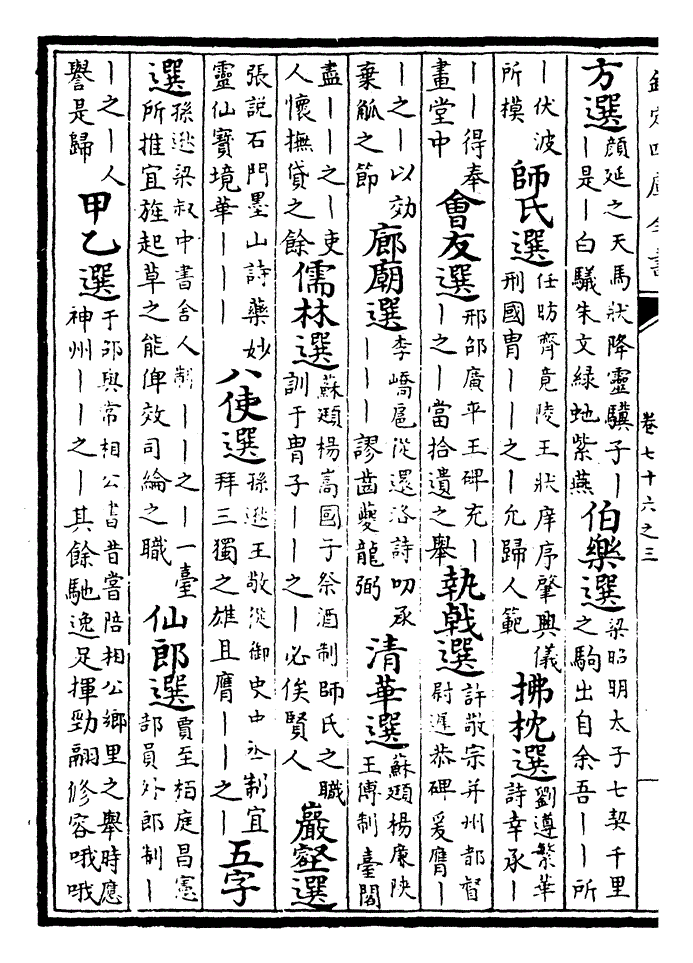 欽定四庫全書
卷七十六之三
方選顔延之天馬狀降靈驥子｜｜是｜白驥朱文緑虵紫燕伯樂選梁昭明太子七契千里之駒出自余吾｜｜所
｜伏波所模師氏選任昉齊竟陵王狀庠序肇興儀刑國胄｜｜之｜允歸人範拂枕選劉遵繁華詩幸承｜
｜｜得奉畫堂中會友選邢邵廣平王碑充｜｜之｜當拾遺之舉執戟選許敬宗并州都督尉遲恭碑爰膺｜
｜之｜以効棄觚之節廊廟選李嶠扈從還洛詩叨承｜｜｜謬齒夔龍弼清華選蘇頲楊廉陜王傅制臺閣
盡｜｜之｜吏人懷撫貸之餘儒林選蘇頲楊嵩國子祭酒制師氏之職訓于胄子｜｜之｜必俟賢人巖壑選
張說石門墨山詩藥妙靈仙寳境華｜｜｜八使選孫逖王敬從御史中丞制宜拜三獨之雄且膺｜｜之｜五字
選孫逖梁叔中書舍人制｜｜之｜一臺所推宜旌起草之能俾效司綸之職仙郎選賈至栢庭昌憲部員外郎制｜
｜之｜人譽是歸甲乙選于邵與常相公書昔嘗陪相公鄉里之舉時應神州｜｜之｜其餘馳逸足揮勁翮修容哦哦